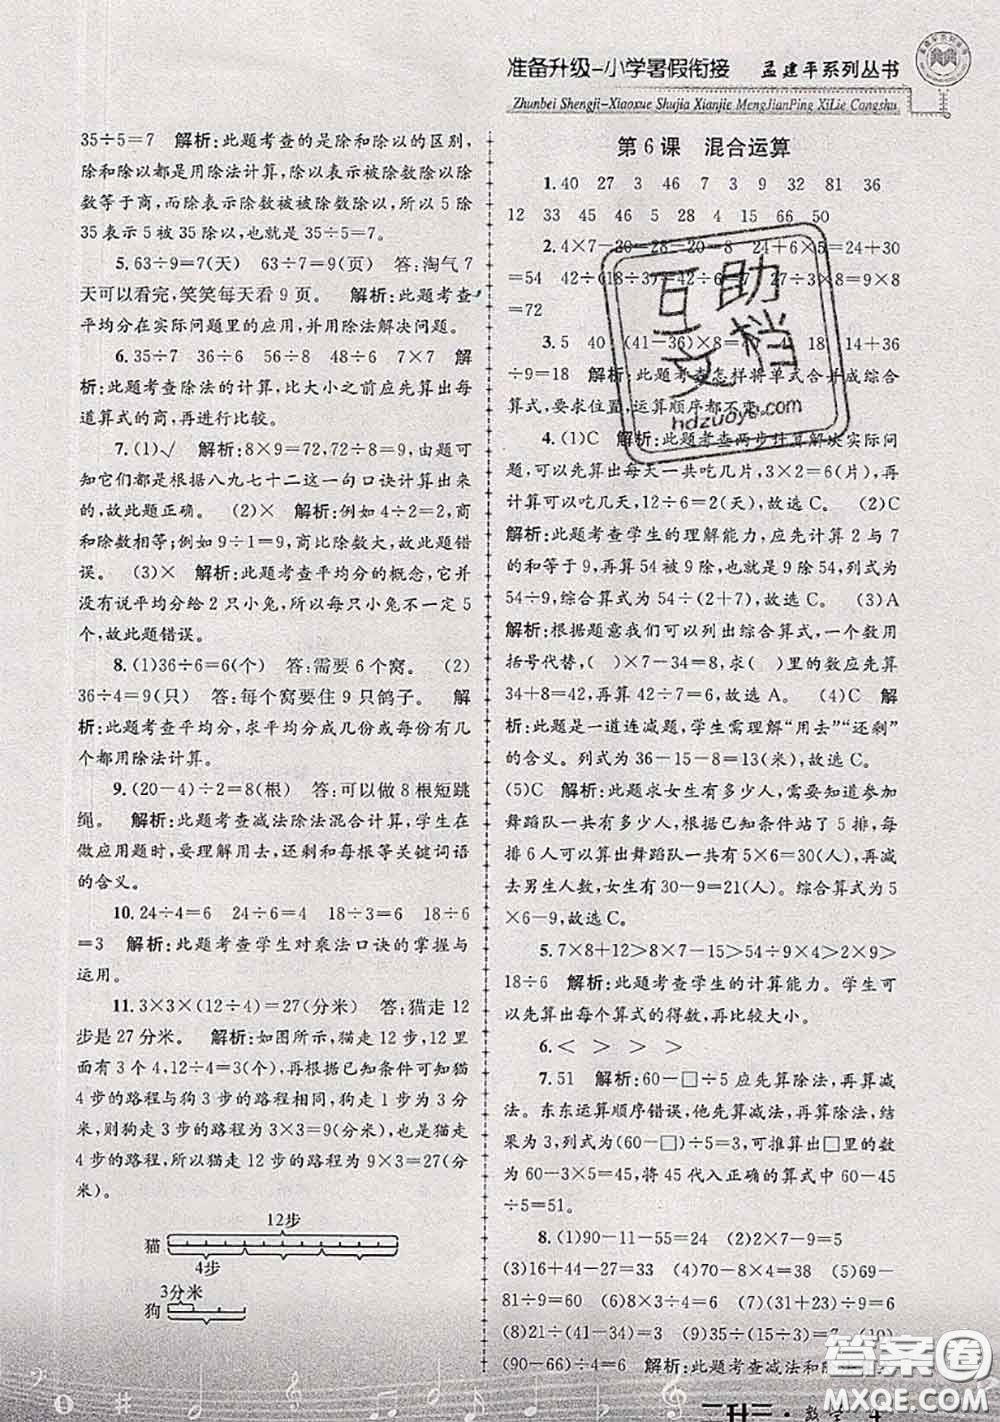 准备升级-小学暑假衔接 孟建平系列丛书
Zhunbei Shengji-Xiaoxue Shujia Xianjie MengJianPing XiLie Congshu
35÷5=7 解析:此题考查的是除和除以的区别,
除和除以都是用除法计算,除以表示被除数除以除
数等于商,而除表示除数被被除数除以,所以 5 除
35 表示 5 被 35 除以,也就是 35÷5=7。
5.63÷9=7(天) 63÷7=9(页) 答:淘气 7
天可以看完,笑笑每天看 9 页。 解析:此题考查
平均分在实际问题里的应用,并用除法解决问题。
6.35÷7 36÷6 56÷8 48÷6 7×7 解
析:此题考查除法的计算,比大小之前应先算出每
道算式的商,再进行比较。
7.(1)√ 解析:8×9=72,72÷8=9,由此可
知它们都是根据八九七十二这一句口诀计算出来
的,故此题正确。 (2)× 解析:例如 4÷2=2,商
和除数相等;例如 9÷1=9,商比除数大,故此题错
误。 (3)× 解析:此题考查平均分的概念,它并
没有说平均分给 2 只小兔,所以每只小兔不一定 5
个,故此题错误。
8.(1)36÷6=6(个) 答:需要 6 个窝。 (2)
36÷4=9(只) 答:每个窝要住 9 只鸽子。 解
析:此题考查平均分,求平均分成几份或每份几个
都用除法计算。
9.(20-4)÷2=8(根) 答:可以做 8 根短跳
绳。 解析:此题考查减法除法混合计算,学生在
做应用题时,要理解用去,还剩和每根等关键词语
的含义。
10.24÷4=6 24÷6=4 18÷3=6 18÷6
=3 解析:此题考查学生对乘法口诀的掌握与
运用。
11.3×3×(12÷4)=27(分米) 答:猫走 12
步是 27 分米。 解析:如图所示,猫走 12 步,12 里
面有 3 个 4,12÷4=3(个),再根据已知条件可知猫
4 步的路程与狗 3 步的路程相同,狗走 1 步为 3 分
米,则狗走 3 步的路程为 3×3=9(分米),也是猫走
4 步的路程,所以猫走 12 步的路程为 9×3=27(分
米)。
12步
猫
4步
3分米
狗
第 6 课 混合运算
1.40 27 3 46 7 3 9 32 81 36
12 33 45 5 28 4 15 66 50
2.4×7-20=28-20=8 24+6×5=24+30
=54 42÷(42÷6)=42÷7=6
=72
3.5 40 (41-36)×8= 4 18 14+36
÷9=18 解析:此题考查怎样将单式合并成综合
算式,要求位置,运算顺序都不变。
4.(1)C 解析:此题考查两步计算解决实际问
题,可以先算出每天一共吃几片,3×2=6(片),再
计算可以吃几天,12÷6=2(天),故选 C。 (2)C
解析:此题考查学生的理解能力,应先算出 2 与 7
的和是 9,再算 54 被 9 除,也可以 54 除以 9,列式为
54÷9,综合算式为 54÷(2+7),故选 C。 (3)A
解析:根据题意我们可以列出综合算式,一个数用
括号代替,( )×7-34=8,求( )里的数应先算
34+8=42,再算 42÷7=6,故选 A。 (4)C 解
析:此题是一道连减题,学生需理解“用去”“还剩”
的含义。列式为 36-15-8=13(米),故选 C。
(5)C 解析:此题求女生有多少人,必须知道参加
舞蹈队一共有多少人,根据已知条件站了 5 排,每
排 6 人可以算出舞蹈队一共有 5×6=30(人),再
减去男生人数,女生有 30-9=21(人),综合算式为 5
×6-9,故选 C。
5.7×8+12>8×7-15>54÷9×4>2×9>
18÷6 解析:此题考查学生的计算能力。学生可
以先算出每个算式的得数,再比较大小。
6.< > > >
7.51 解析:60-□÷5 应先算除法,再算减
法。东东运算顺序错误,他先算减法,再算除法,结
果为 3,列式为(60-□)÷5=3,可推算出□里的数
为 60-3×5=45,将 45 代入正确的算式中 60-45
÷5=51。
8.(1)90-11-55=24 (2)7×2-9=5
(3)16+44-27=33 (4)70-8×4=38 (5)69-
81÷9=60 (6)47-4×6=23 (7)32÷4+9=17
(8)21÷(41-34)=3 (10)
(90-66)÷4=6 解析:此题考查减法和除
互助文档
hdzuoye.com
答案圈
MXQE.COM
二升三·数学